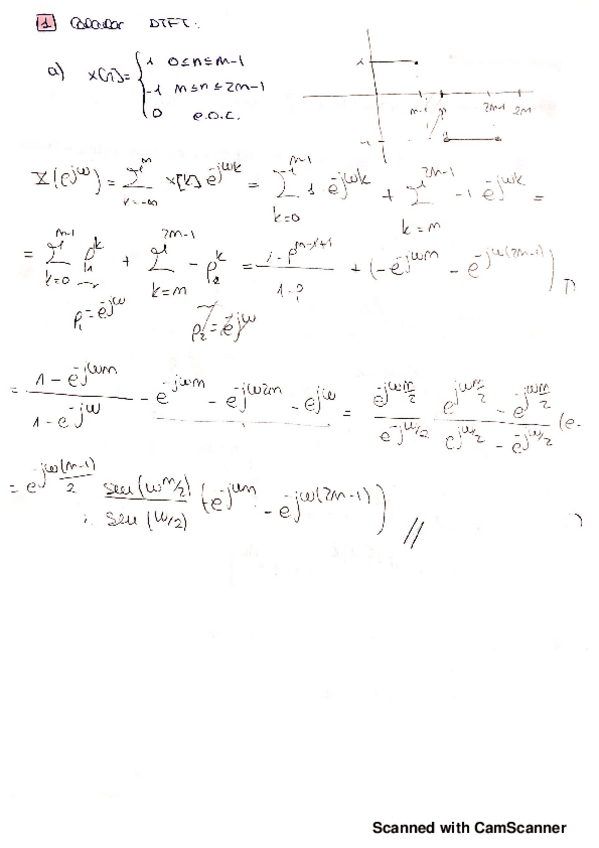 1 Calcular DTFT:
a) x[n] = { 1 0≤n≤M-1
-1 M≤n≤2M-1
0 e.o.c.
1
M-1 M 2M-1 2M
-1
X(e^jω) = Σ_{k=-∞}^{∞} x[k] e^{-jωk} = Σ_{k=0}^{M-1} 1 e^{-jωk} + Σ_{k=M}^{2M-1} -1 e^{-jωk} =
= Σ_{k=0}^{M-1} p_1^k + Σ_{k=M}^{2M-1} -p_2^k = (1-p^{M-1+1})/(1-p) + (-e^{-jωM} - e^{-jω(2M-1)})
p_1 = e^{-jω} p_2 = e^{-jω}
= (1-e^{-jωM})/(1-e^{-jω}) - e^{-jωM} - e^{-jω2M} - e^{jω} = (e^{-jωM/2})/(e^{-jω/2}) (e^{jωM/2} - e^{-jωM/2})/(e^{jω/2} - e^{-jω/2}) (e-
= e^{-jω(M-1)/2} sen(ωM/2)/sen(ω/2) (-e^{-jωM} - e^{-jω(2M-1)}) //
Scanned with CamScanner